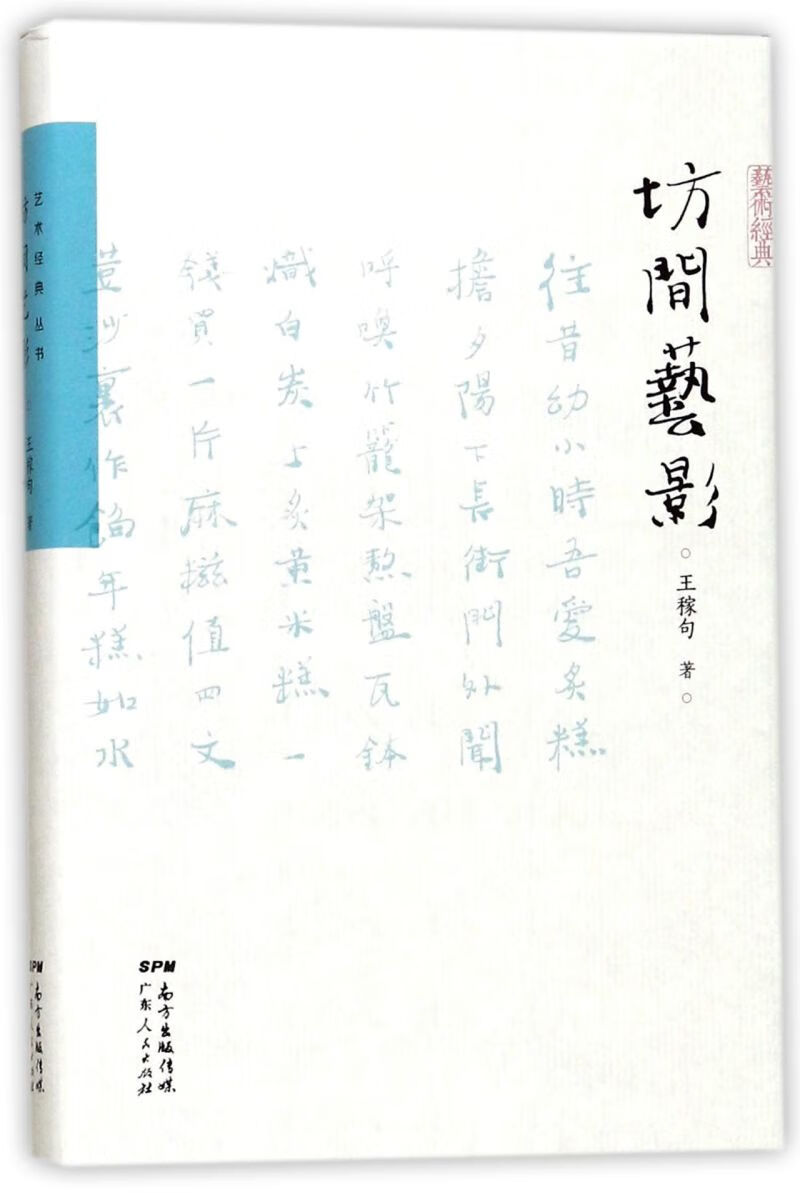 藝術經典
坊間藝影
王稼句 著
往昔幼小時吾愛炙糕
擔夕陽下長街門外聞
呼喚竹籠架熬盤瓦鉢
熾白炭上炙黄米糕一
錢買一片麻糍值四文
荳沙裏作餡年糕如水
SPM
南方出版传媒
广东人民出版社
艺术经典丛书
坊間藝影
王稼句 著
SPM
南方出版传媒